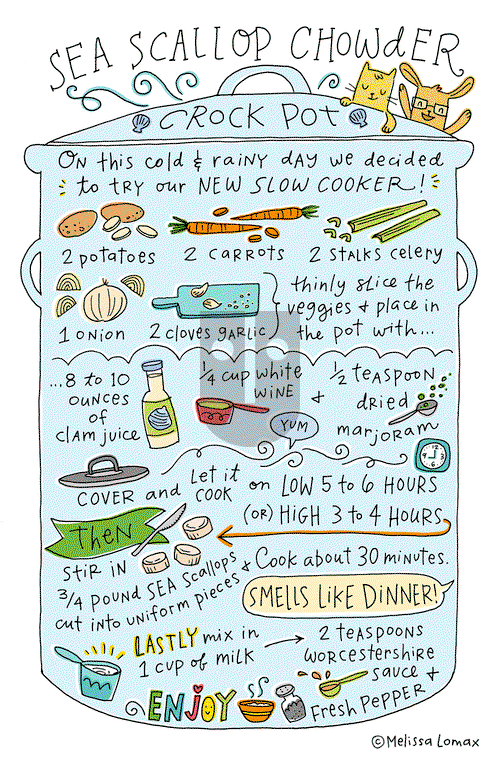 SEA SCALLOP CHOWDER
CROCK POT
ON this cold & rainy day we decided
to try our NEW SLOW COOKER!
2 potatoes
2 carrots
2 stalks celery
1 onion
2 cloves garlic
thinly slice the
veggies + place in
the pot with...
...8 to 10
ounces
of
clam juice
1/4 cup white
wine
+
1/2 teaspoon
dried
marjoram
YUM
COVER and Let it
COOK on LOW 5 to 6 HOURS
(OR) HIGH 3 to 4 HOURS
then
Stir in
3/4 pound SEA Scallops
cut into uniform pieces
+ Cook about 30 minutes.
SMELLS LIKE DINNER!
LASTLY mix in
1 cup of milk
2 teaspoons
Worcestershire
sauce +
Fresh Pepper
ENJOY
©Melissa Lomax